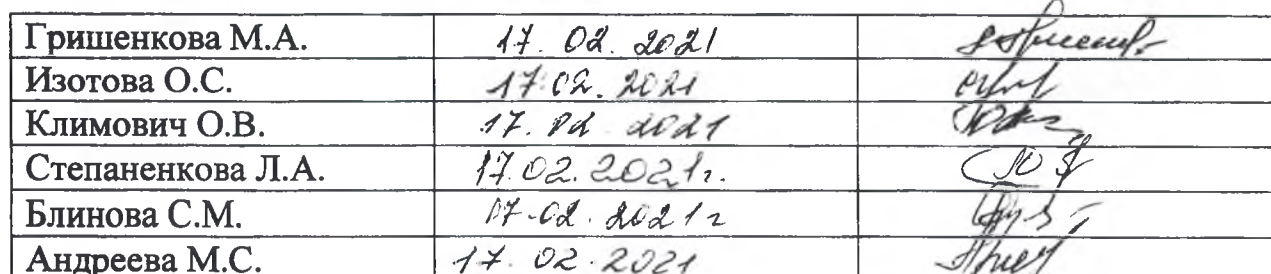 Гришенкова М.А. 17.02.2021
Изотова О.С. 17.02.2021
Климович О.В. 17.02.2021
Степаненкова Л.А. 17.02.2021г.
Блинова С.М. 17.02.2021г
Андреева М.С. 17.02.2021